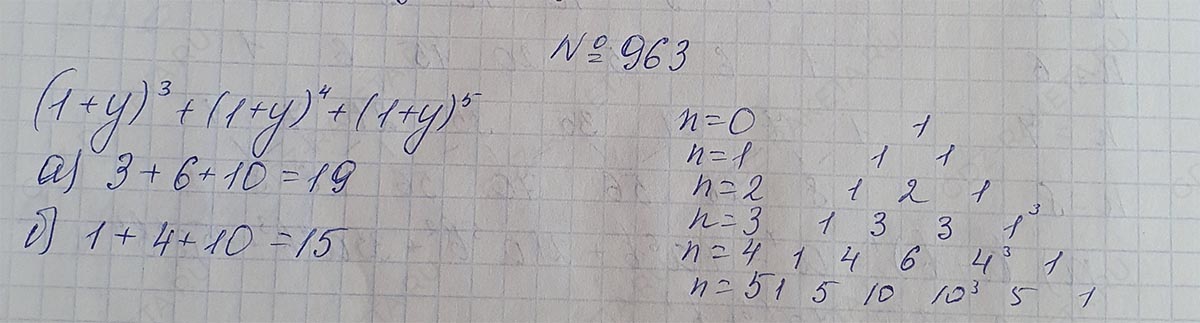 № 963
(1+y)³+(1+y)⁴+(1+y)⁵
а) 3+6+10=19
б) 1+4+10=15
n=0 1
n=1 1 1
n=2 1 2 1
n=3 1 3 3 1³
n=4 1 4 6 4³ 1
n=5 1 5 10 10³ 5 1